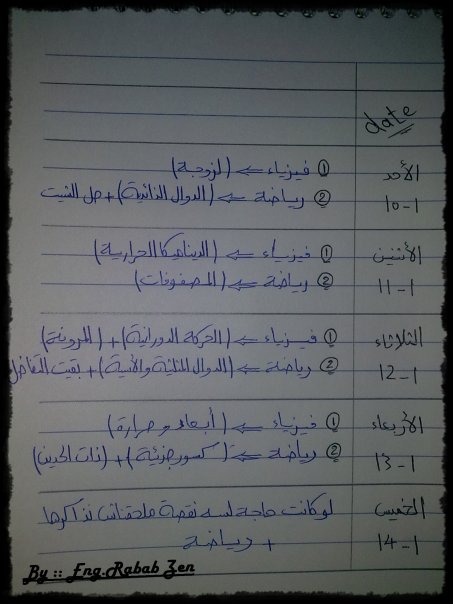 date
الأحد
① فيزياء ⇐ (لزوجة)
10-1
② رياضة ⇐ (الدوال الذاتية) + حل الشيت
الأثنين
① فيزياء ⇐ (الديناميكا الحرارية)
11-1
② رياضة ⇐ (المصفوفات)
الثلاثاء
① فيزياء ⇐ (الحركة الدورانية) + (المرونة)
12-1
② رياضة ⇐ (الدوال المثلثية والأسية) + بقيت التفاضل
الأربعاء
① فيزياء ⇐ (أبعاد و حرارة)
13-1
② رياضة ⇐ (كسور جزئية) + (ذات الحدين)
الخميس
لو كانت حاجة لسه نقصة ملحقناش نذاكرها
14-1
+ رياضة
By :: Eng.Rabab Zen